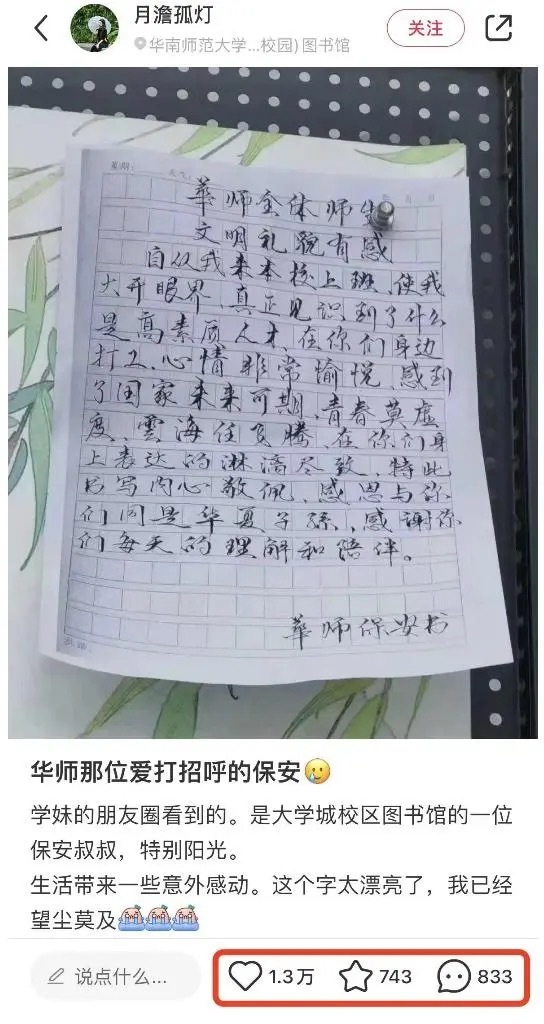 月澹孤灯
华南师范大学...校园) 图书馆
关注
星期:
天气:
華师全体师生
文明礼貌有感
自从我来本校上班、使我
大开眼界、真正见识到了什么
是高素质人才、在你们身边
打工、心情非常愉悦、感到
了国家未来可期、青春莫虚
度、雲海任飞腾、在你们身
上表达的淋漓尽致、特此
书写内心敬佩、感恩与你
们同是华夏子孫、感谢你
们每天的理解和陪伴。
華师保安书
华师那位爱打招呼的保安
学妹的朋友圈看到的。是大学城校区图书馆的一位
保安叔叔，特别阳光。
生活带来一些意外感动。这个字太漂亮了，我已经
望尘莫及
说点什么...
1.3万
743
833